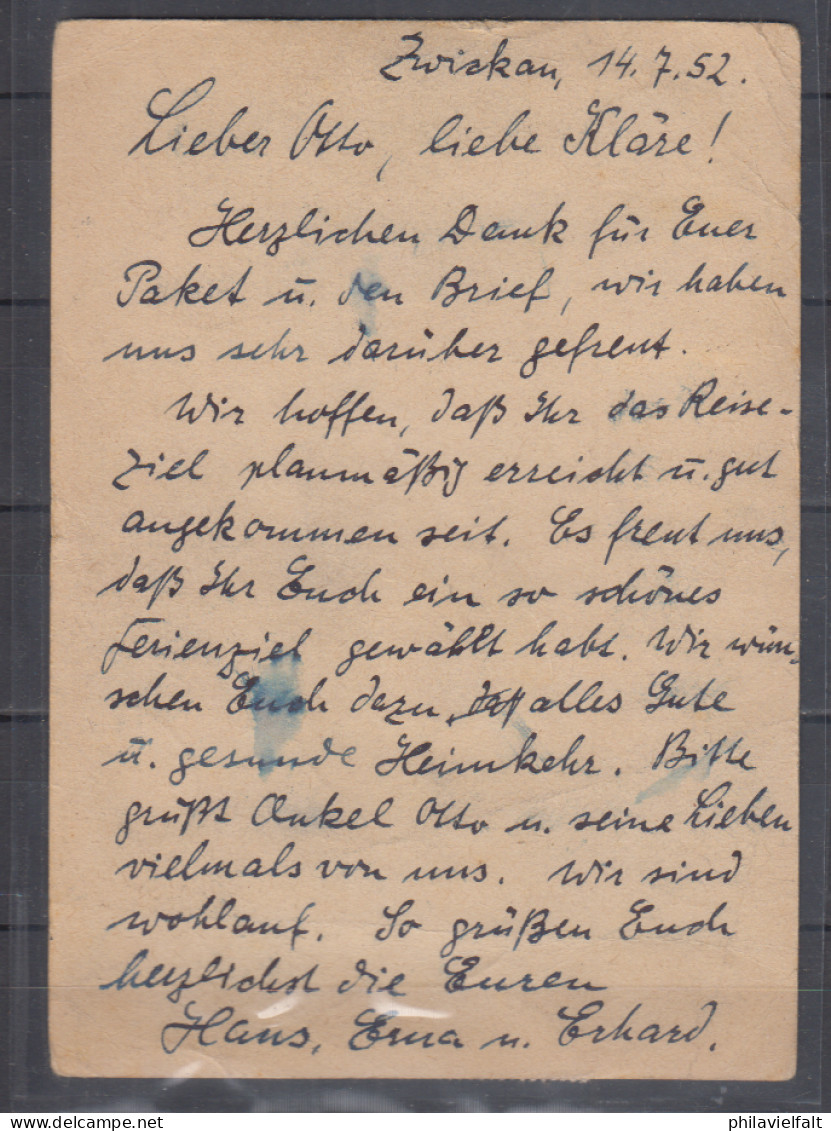 Zwickau, 14.7.52.
Lieber Otto, liebe Kläre!
Herzlichen Dank für Euer
Paket u. den Brief, wir haben
uns sehr darüber gefreut.
Wir hoffen, daß Ihr das Reise-
ziel planmäßig erreicht u. gut
angekommen seit. Es freut uns,
daß Ihr Euch ein so schönes
Ferienziel gewählt habt. Wir wün-
schen Euch dazu alles Gute
u. gesunde Heimkehr. Bitte
grüßt Onkel Otto u. seine Lieben
vielmals von uns. Wir sind
wohlauf. So grüßen Euch
herzlichst die Euren
Hans, Erna u. Erhard.
philavielfalt